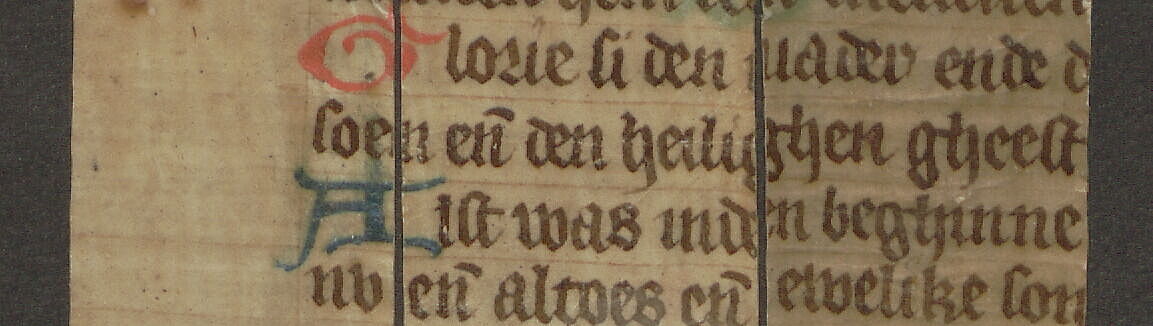 Glorie si den uader ende d
soen en̄ den heilighen gheest
Alst was inden beghinne
nv en̄ altoes en̄ ewelike son